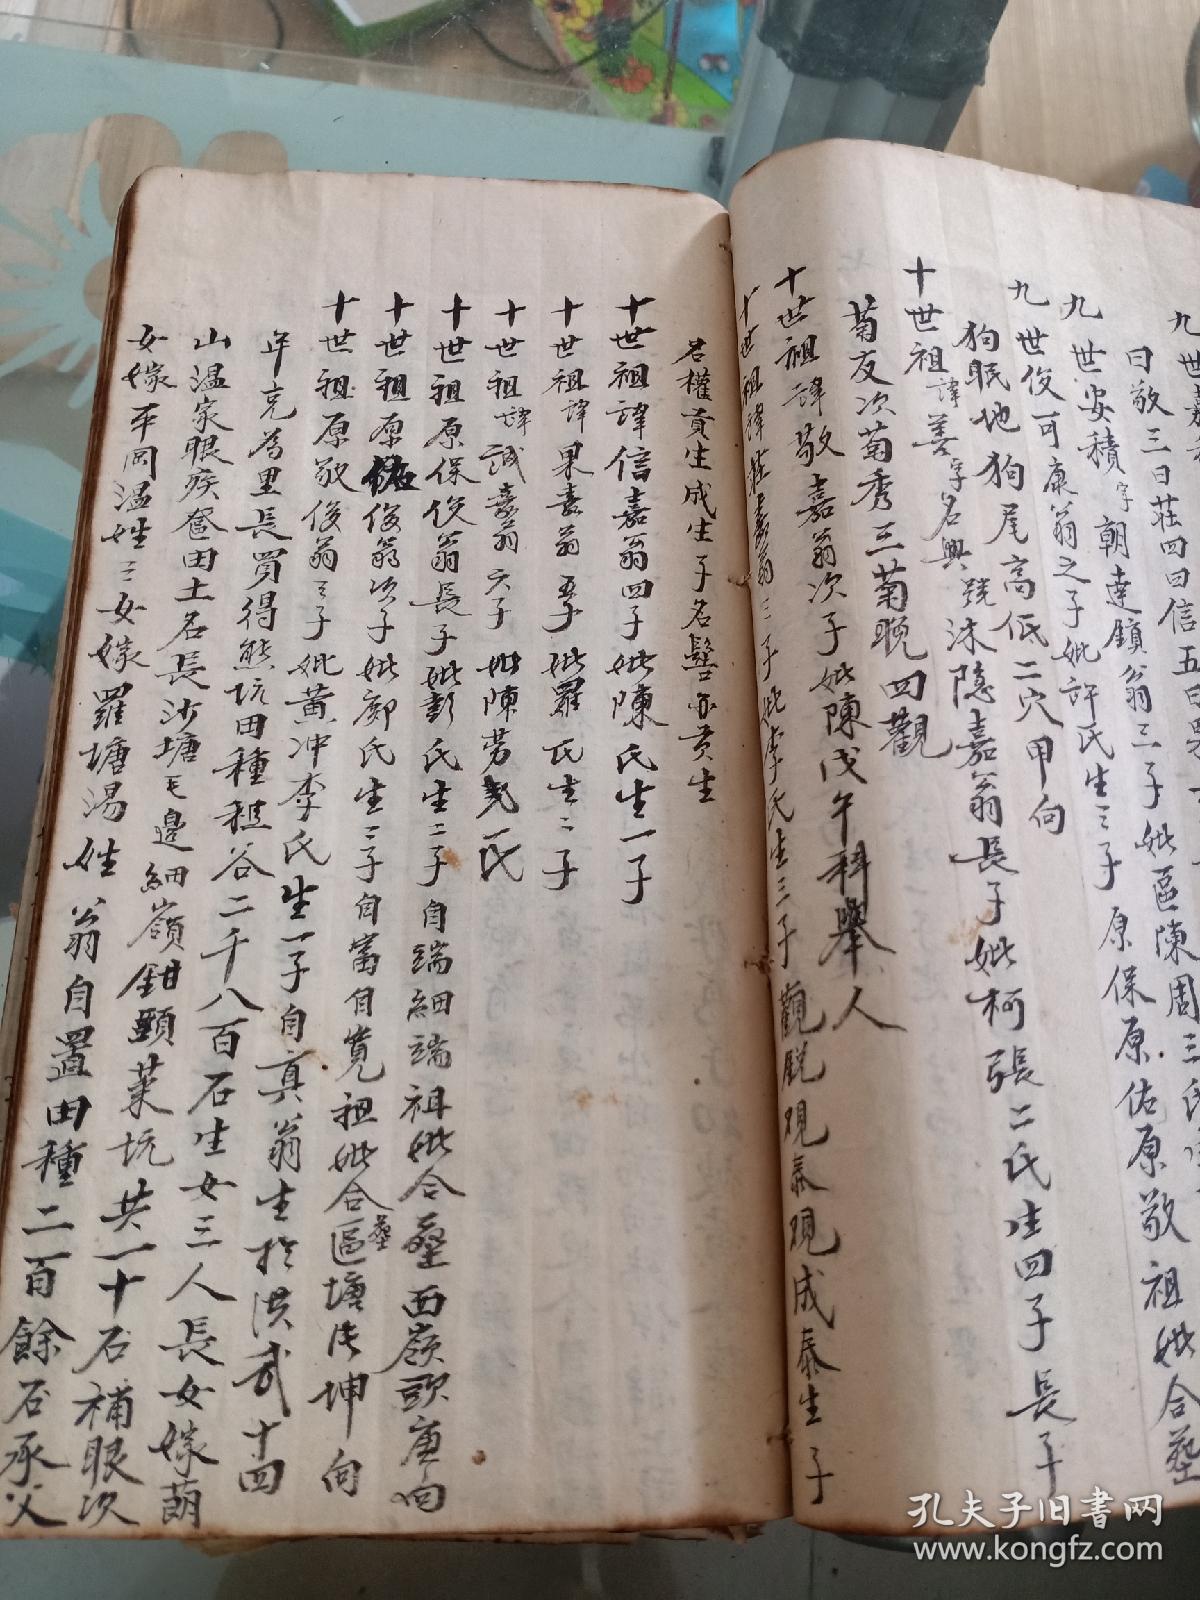 九世嘉
曰敬三曰莊四曰信五曰果
九世安積字朝達鎮翁三子妣區陳周三氏
九世俊可康翁之子妣許氏生三子原保原佑原敬祖妣合塟
狗眠地狗尾高低二穴甲向
十世祖諱善字名興號沐隱嘉翁長子妣柯張二氏生四子長子
菊友次菊秀三菊晚四觀
十世祖諱敬嘉翁次子妣陳戊午科舉人
十世祖諱莊嘉翁三子妣李氏生三子觀脫觀泰觀成泰生子
名權貢生成生子名髻亦貢生
十世祖諱信嘉翁四子妣陳氏生一子
十世祖諱果嘉翁五子妣羅氏生二子
十世祖諱誠嘉翁六子妣陳勞氏
十世祖原保俊翁長子妣彭氏生二子自端細端祖妣合塟西嶺頭庚向
十世祖原佑俊翁次子妣鄺氏生二子自富自寬祖妣合塟區塘坤向
十世祖原敬俊翁三子妣黃冲李氏生一子自真翁生於洪武十四
年充為里長買得熊坑田種租谷二千八百石生女三人長女嫁萠
山溫家眼疾奩田土名長沙塘邊細嶺鉗頸菜坑共一十石補眼次
女嫁平岡溫姓三女嫁羅塘湯姓 翁自置田種二百餘石承父
孔夫子旧书网
www.kongfz.com